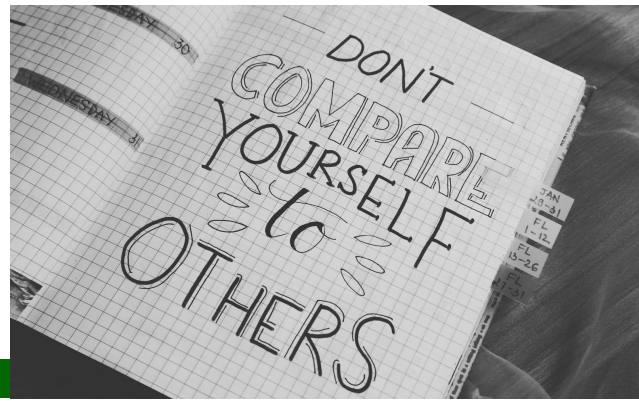 ESDAY 30
WEDNESDAY 31
DON'T
COMPARE
YOURSELF
to
OTHERS
JAN
28-31
FL
1-12
FL
13-26
FL
27-31